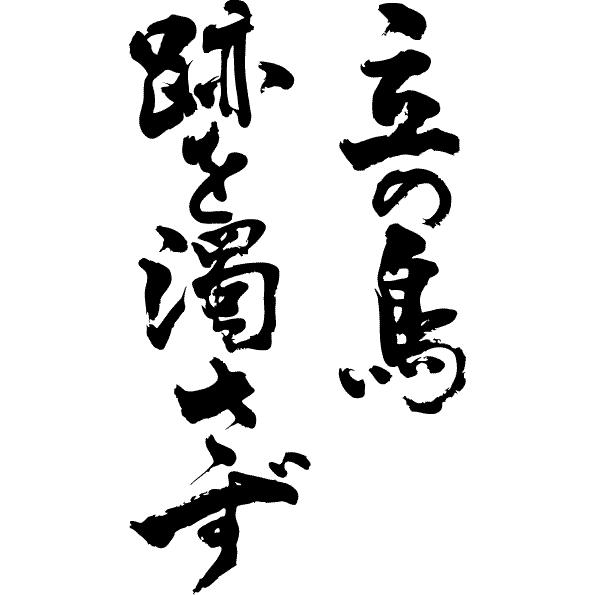 立の鳥
跡を濁さず